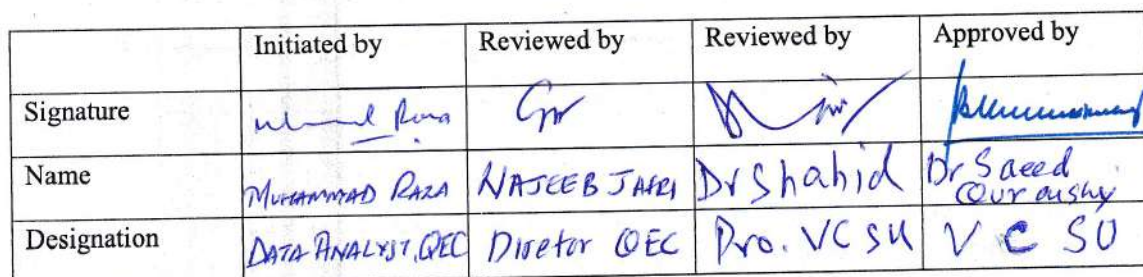 Initiated by Reviewed by Reviewed by Approved by
Signature
Name MUHAMMAD RAZA NAJEEB JAFRI Dr Shahid Dr Saeed
Quraishy
Designation DATA ANALYST, QEC Diretor QEC Pro. VC SU V C SU